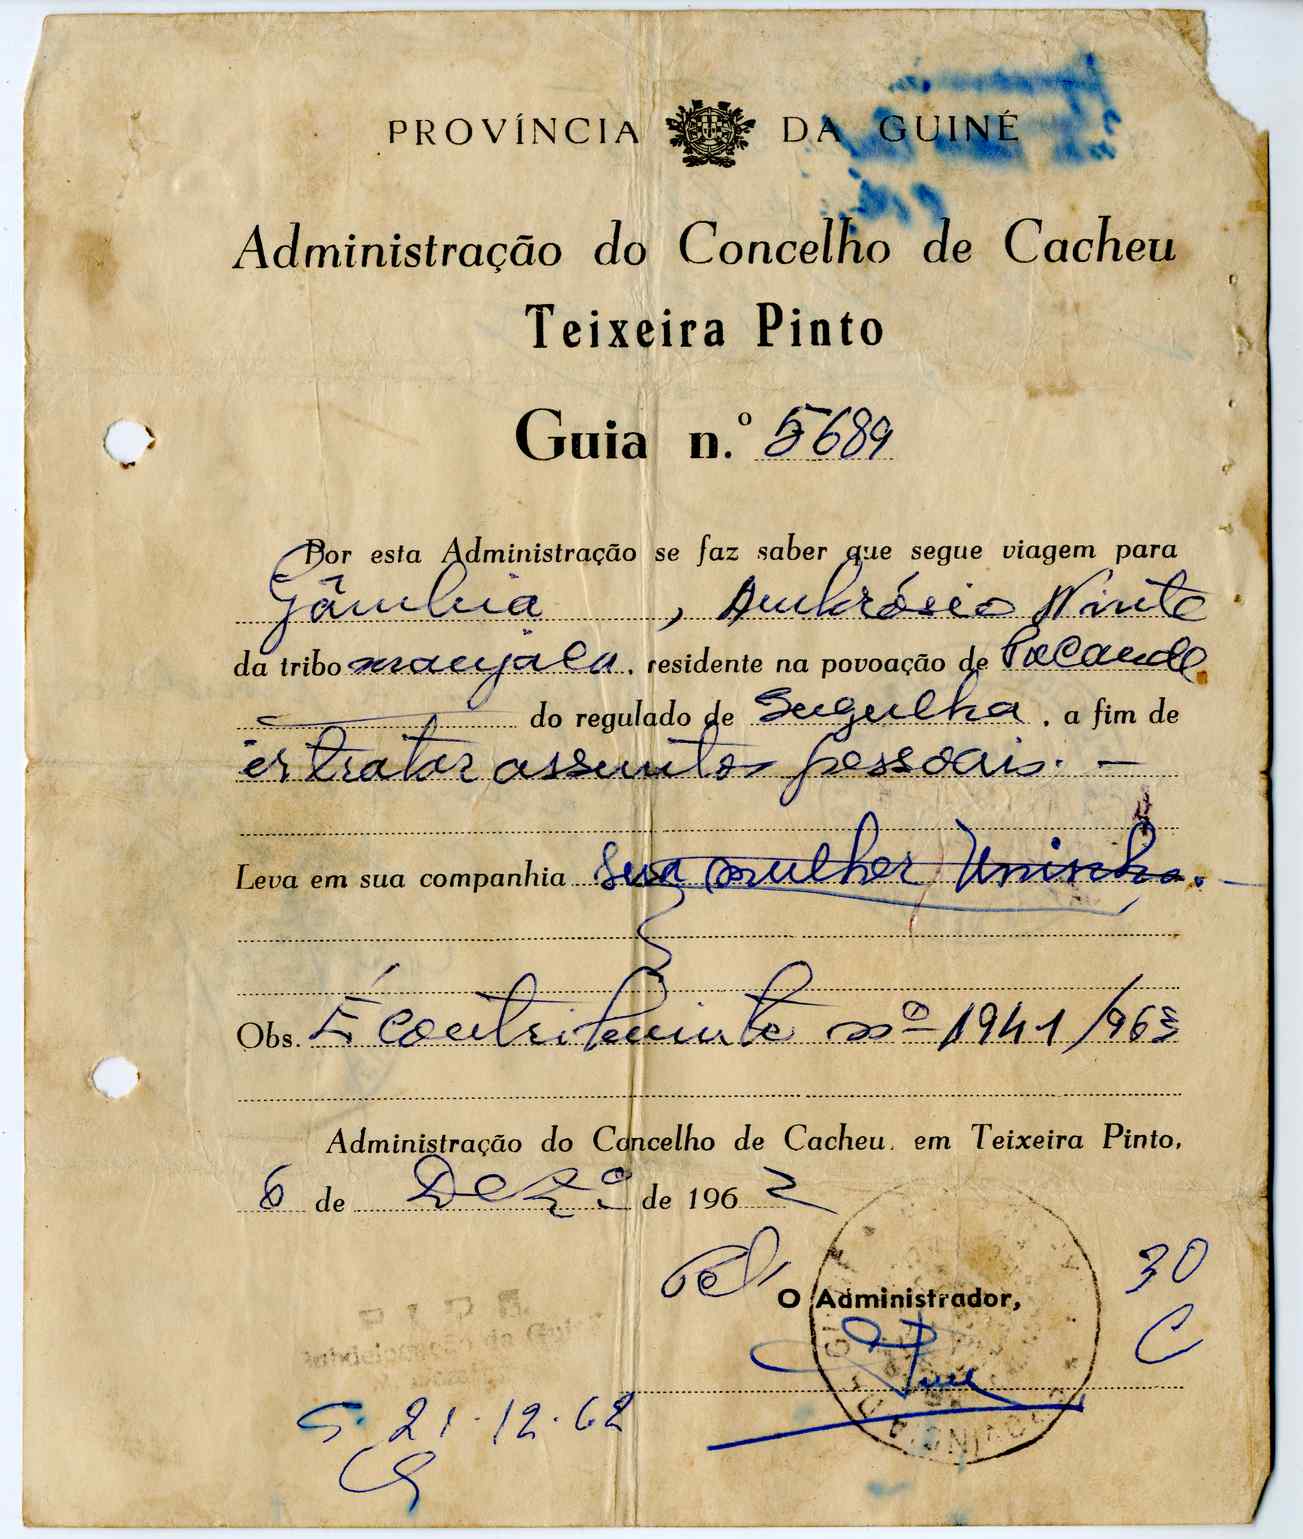 PROVÍNCIA DA GUINÉ
Administração do Concelho de Cacheu
Teixeira Pinto
Guia n.º 5689
Por esta Administração se faz saber que segue viagem para
Gâmbia, Ambrósio Pinto
da tribo manjaca, residente na povoação de Pacande
do regulado de , a fim de
ir tratar assuntos pessoais. —
Leva em sua companhia sua mulher
Obs. É contribuinte nº 1941/963
Administração do Concelho de Cacheu, em Teixeira Pinto,
6 de Dezº de 1962
Pel' O Administrador,
30
C
P I D E
Subdelegação da Guiné
21-12-62